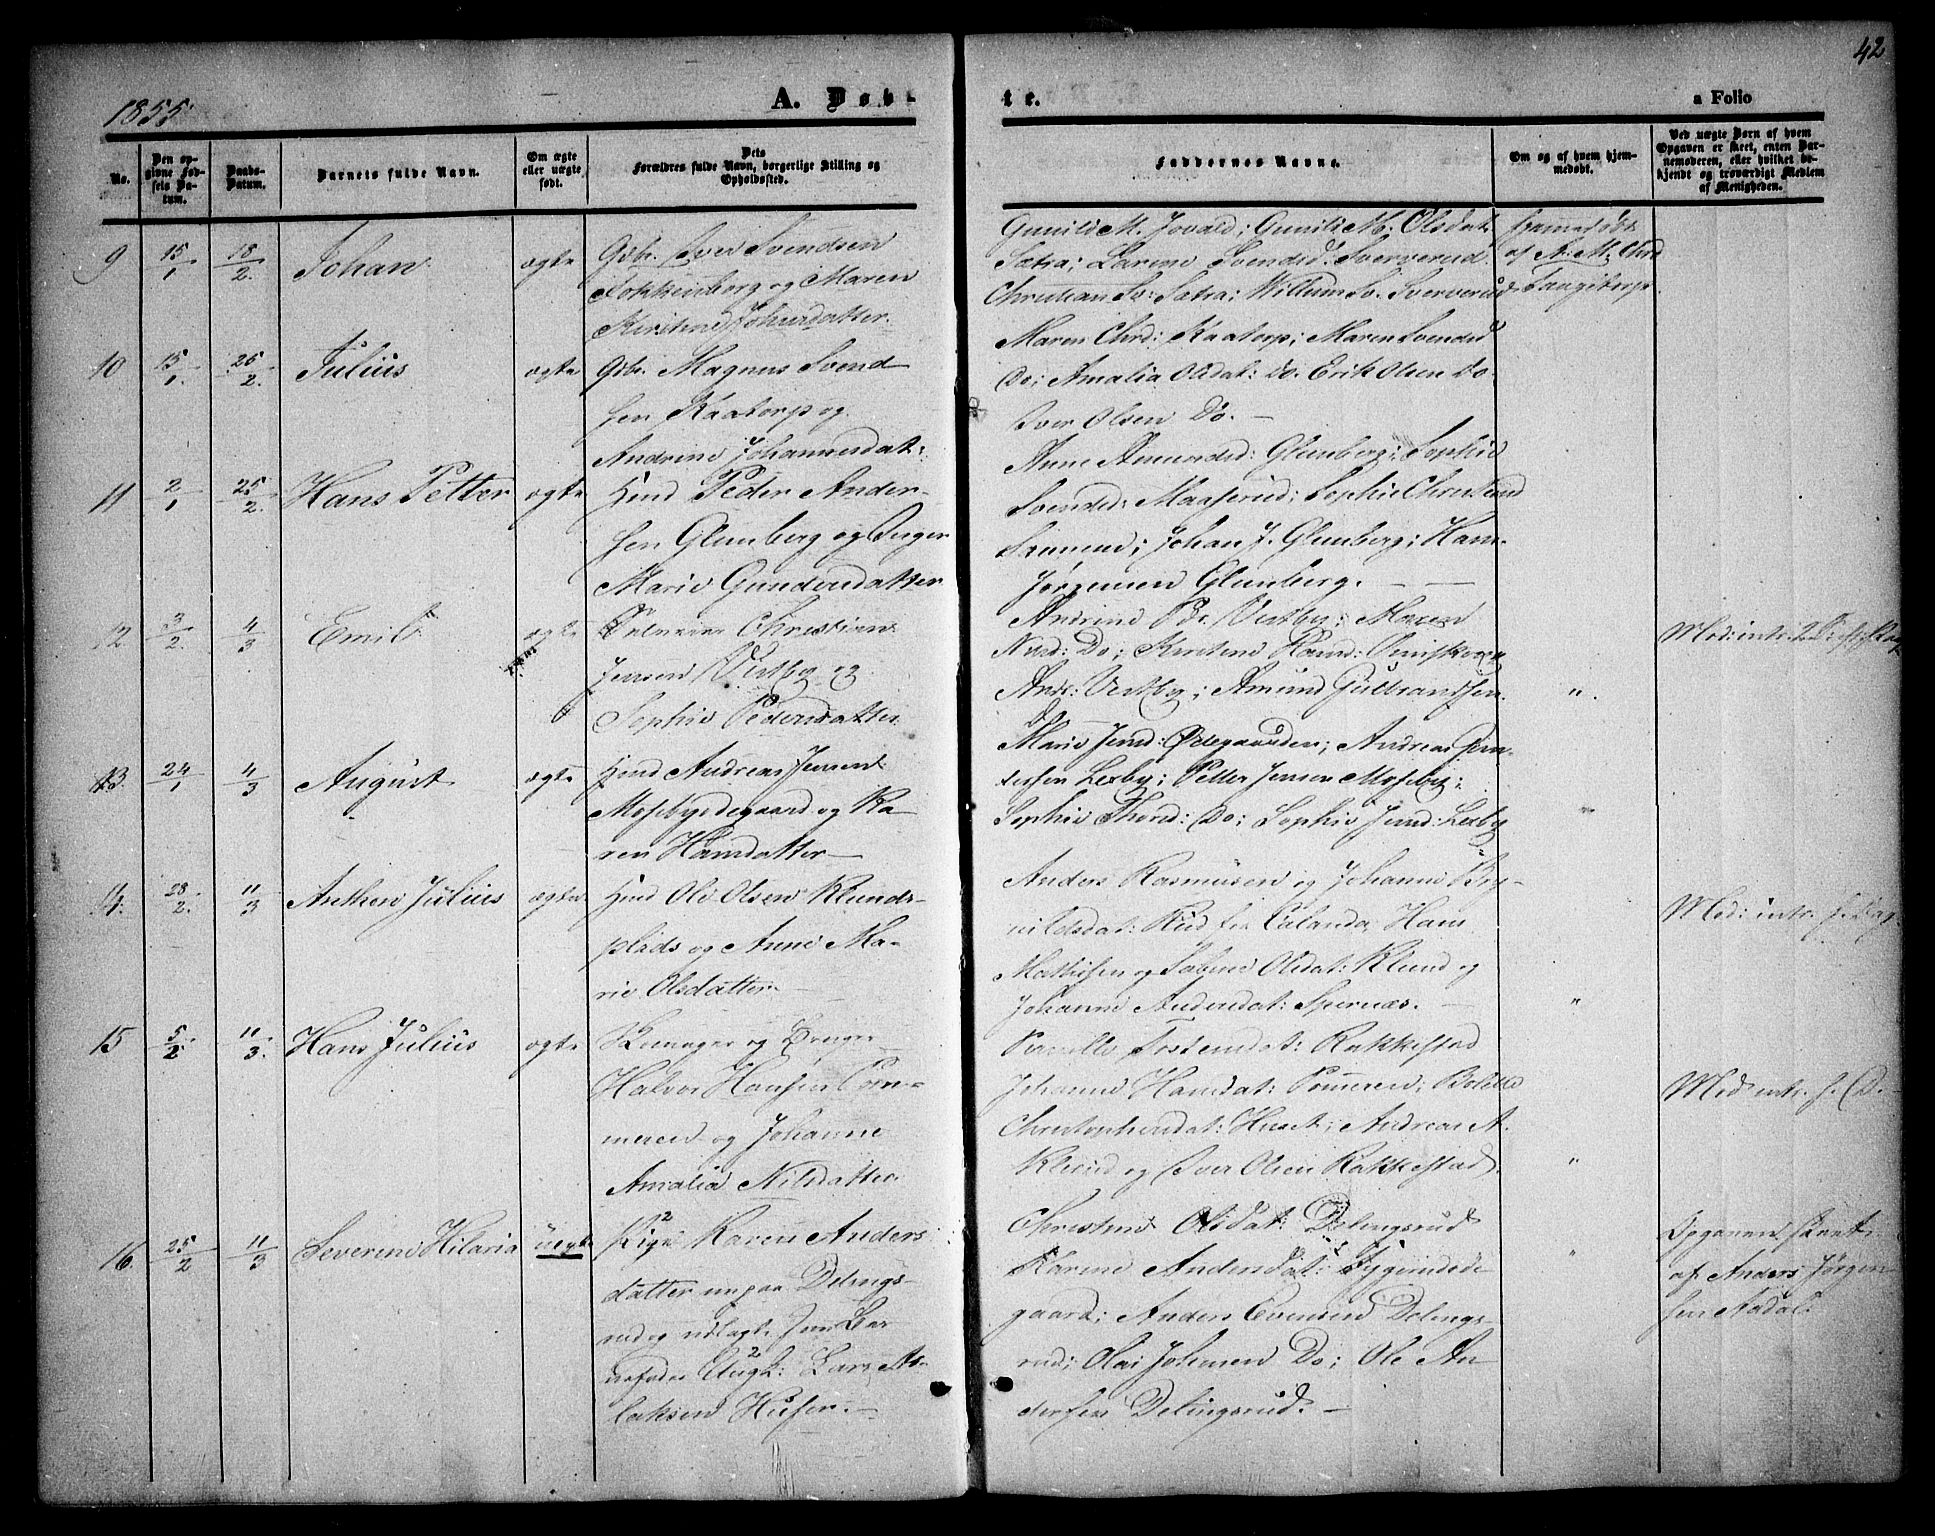 42
1855.
A. Døb-
te.
a Folio
No.
Den opgivne Fødsels Datum.
Daabs-Datum.
Barnets fulde Navn.
Om ægte eller uægte født.
Dets Forældres fulde Navn, borgerlige Stilling og Opholdssted.
Faddernes Navne.
Om og af hvem hjemmedøbt.
Ved uægte Børn af hvem Opgaven er skeet, enten Barnemoderen, eller hvilket bekjendt og troværdigt Medlem af Menigheden.
9 15/1 18/2. Johan ægte Gbr. Iver Svendsen
Fokkenborg og Maren
Kirstine Johnsdatter.
Gunild M. Jovald; Gunild M. Olsdat.
Sætra; Larine Svendsd: Sververud
Christian Sv: Sætra; Willum Sv. Sververud
Hjemmedøbt
af A: M: Chrd
Taugetorp.
10 15/1. 25/2. Julius ægte Gbr. Magnus Svend
sen Kaatorp og
Andrine Johannesdat:
Maren Chrd: Kaatorp; Maren Svendsd
Do; Amalia Olsdat: Do. Erik Olsen Do.
Iver Olsen Do. —
11 2/1 25/2. Hans Petter ægte Hmd Peder Ander-
sen Glenberg og Inger
Marie Gundersdatter
Anne Amundsd: Glenberg; Sophie
Svendsd: Maaserud; Sophie Christensd
Johan J. Glenberg; Hans
Jørgensen Glenberg. — —
12. 3/2. 4/3 Emil ægte Christian
Jensen Vestby og
Sophie Pedersdatter
Andrine Vestby; Maren
Do; Kirstine
Ands: Vestby; Amund Gulbrandsen
Do
".
Mod: intr.
13. 24/1 4/3 August ægte Hmd Andreas Jensen
Mosebyødegaard og Ka-
ren Hansdatter —
Marie Jensd: Ødegaarden; Andreas Pen-
tersen Lexby; Petter Jensen Moseby;
Sophie Thord: Do; Sophie Jensd: Lexby
"
14. 28/2. 11/3 Anthon Julius ægte Hmd Ole Olsen Klunds-
plads og Anne Ma-
rie Olsdatter —
Anders Rasmusen og Johanne Bry-
nildsdat: Rud
Hans
Mathisen og Sabine Olsdat: Klund og
Johanne Andersdat: Spernæs. —
"
Mod: intr. s. Dag.
15 5/2. 11/3. Hans Julius ægte Kremager og Bruger
Halvor Hansen Pom-
meren og Johanne
Amalia Nilsdatter.
Pernille Tostensdat: Rakkestad
Johanne Hansdat: Pommeren; Bolette
Christophersdat: Huset; Andreas A.
Klund og Iver Olsen Rakkestad.
"
Mod intr. s. D.
16 25/2 11/3 Severine Hilaria uægte Pige Karen Anders
datter unpaa Delings-
rud og udlagt som Bar
nefader Ungk: Lars As-
laksen Husen. —
Christine Olsdat: Delingsrud
Karine Andersdat:
gaard; Anders Evensen Delings-
rud; Olai Johnsen Do; Ole An
dersen Delingsrud. —
"
Opgaven skeet
af Anders Jørgen
sen Aadal.